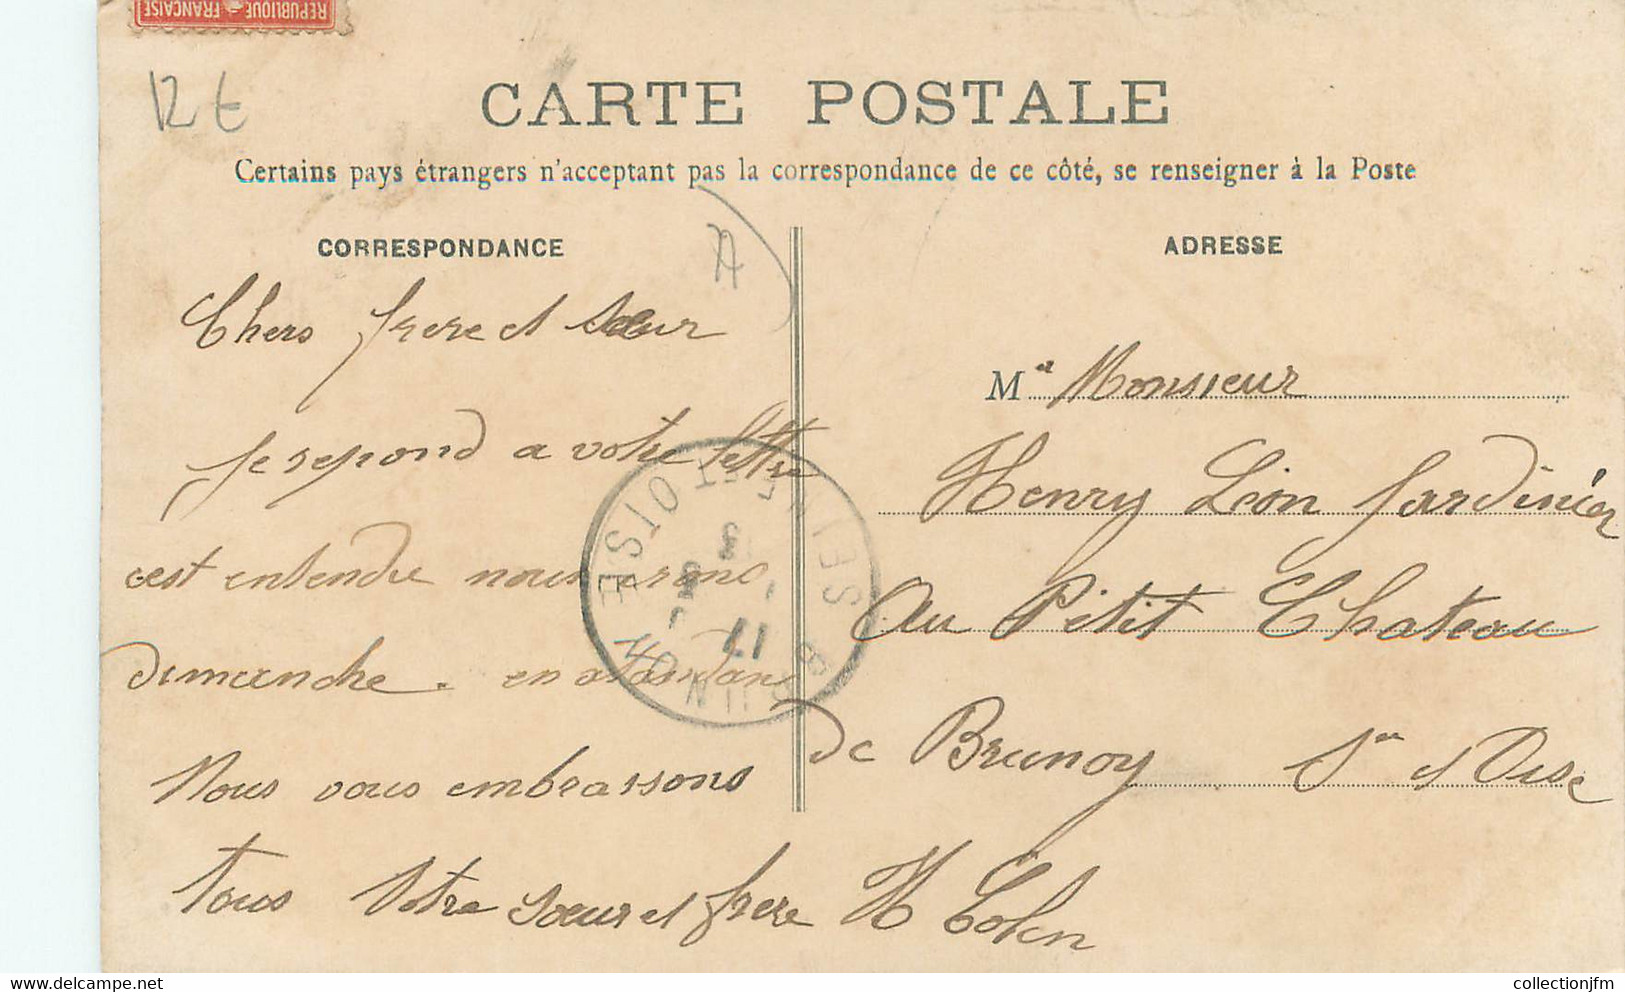 REPUBLIQUE FRANÇAISE
12 €
CARTE POSTALE
Certains pays étrangers n'acceptant pas la correspondance de ce côté, se renseigner à la Poste
CORRESPONDANCE
A
Chers frere et sœur
je repond a votre lettre
cest entendu nous irons
dimanche. en attendant
Nous vous embrassons
tous Votre sœur et frere H Colin
ADRESSE
M Monsieur
Henry Léon Jardinier
Au Petit Chateau
de Brunoy S et Oise
SEINE ET OISE
17
collection-jfm.fr
collectionjfm